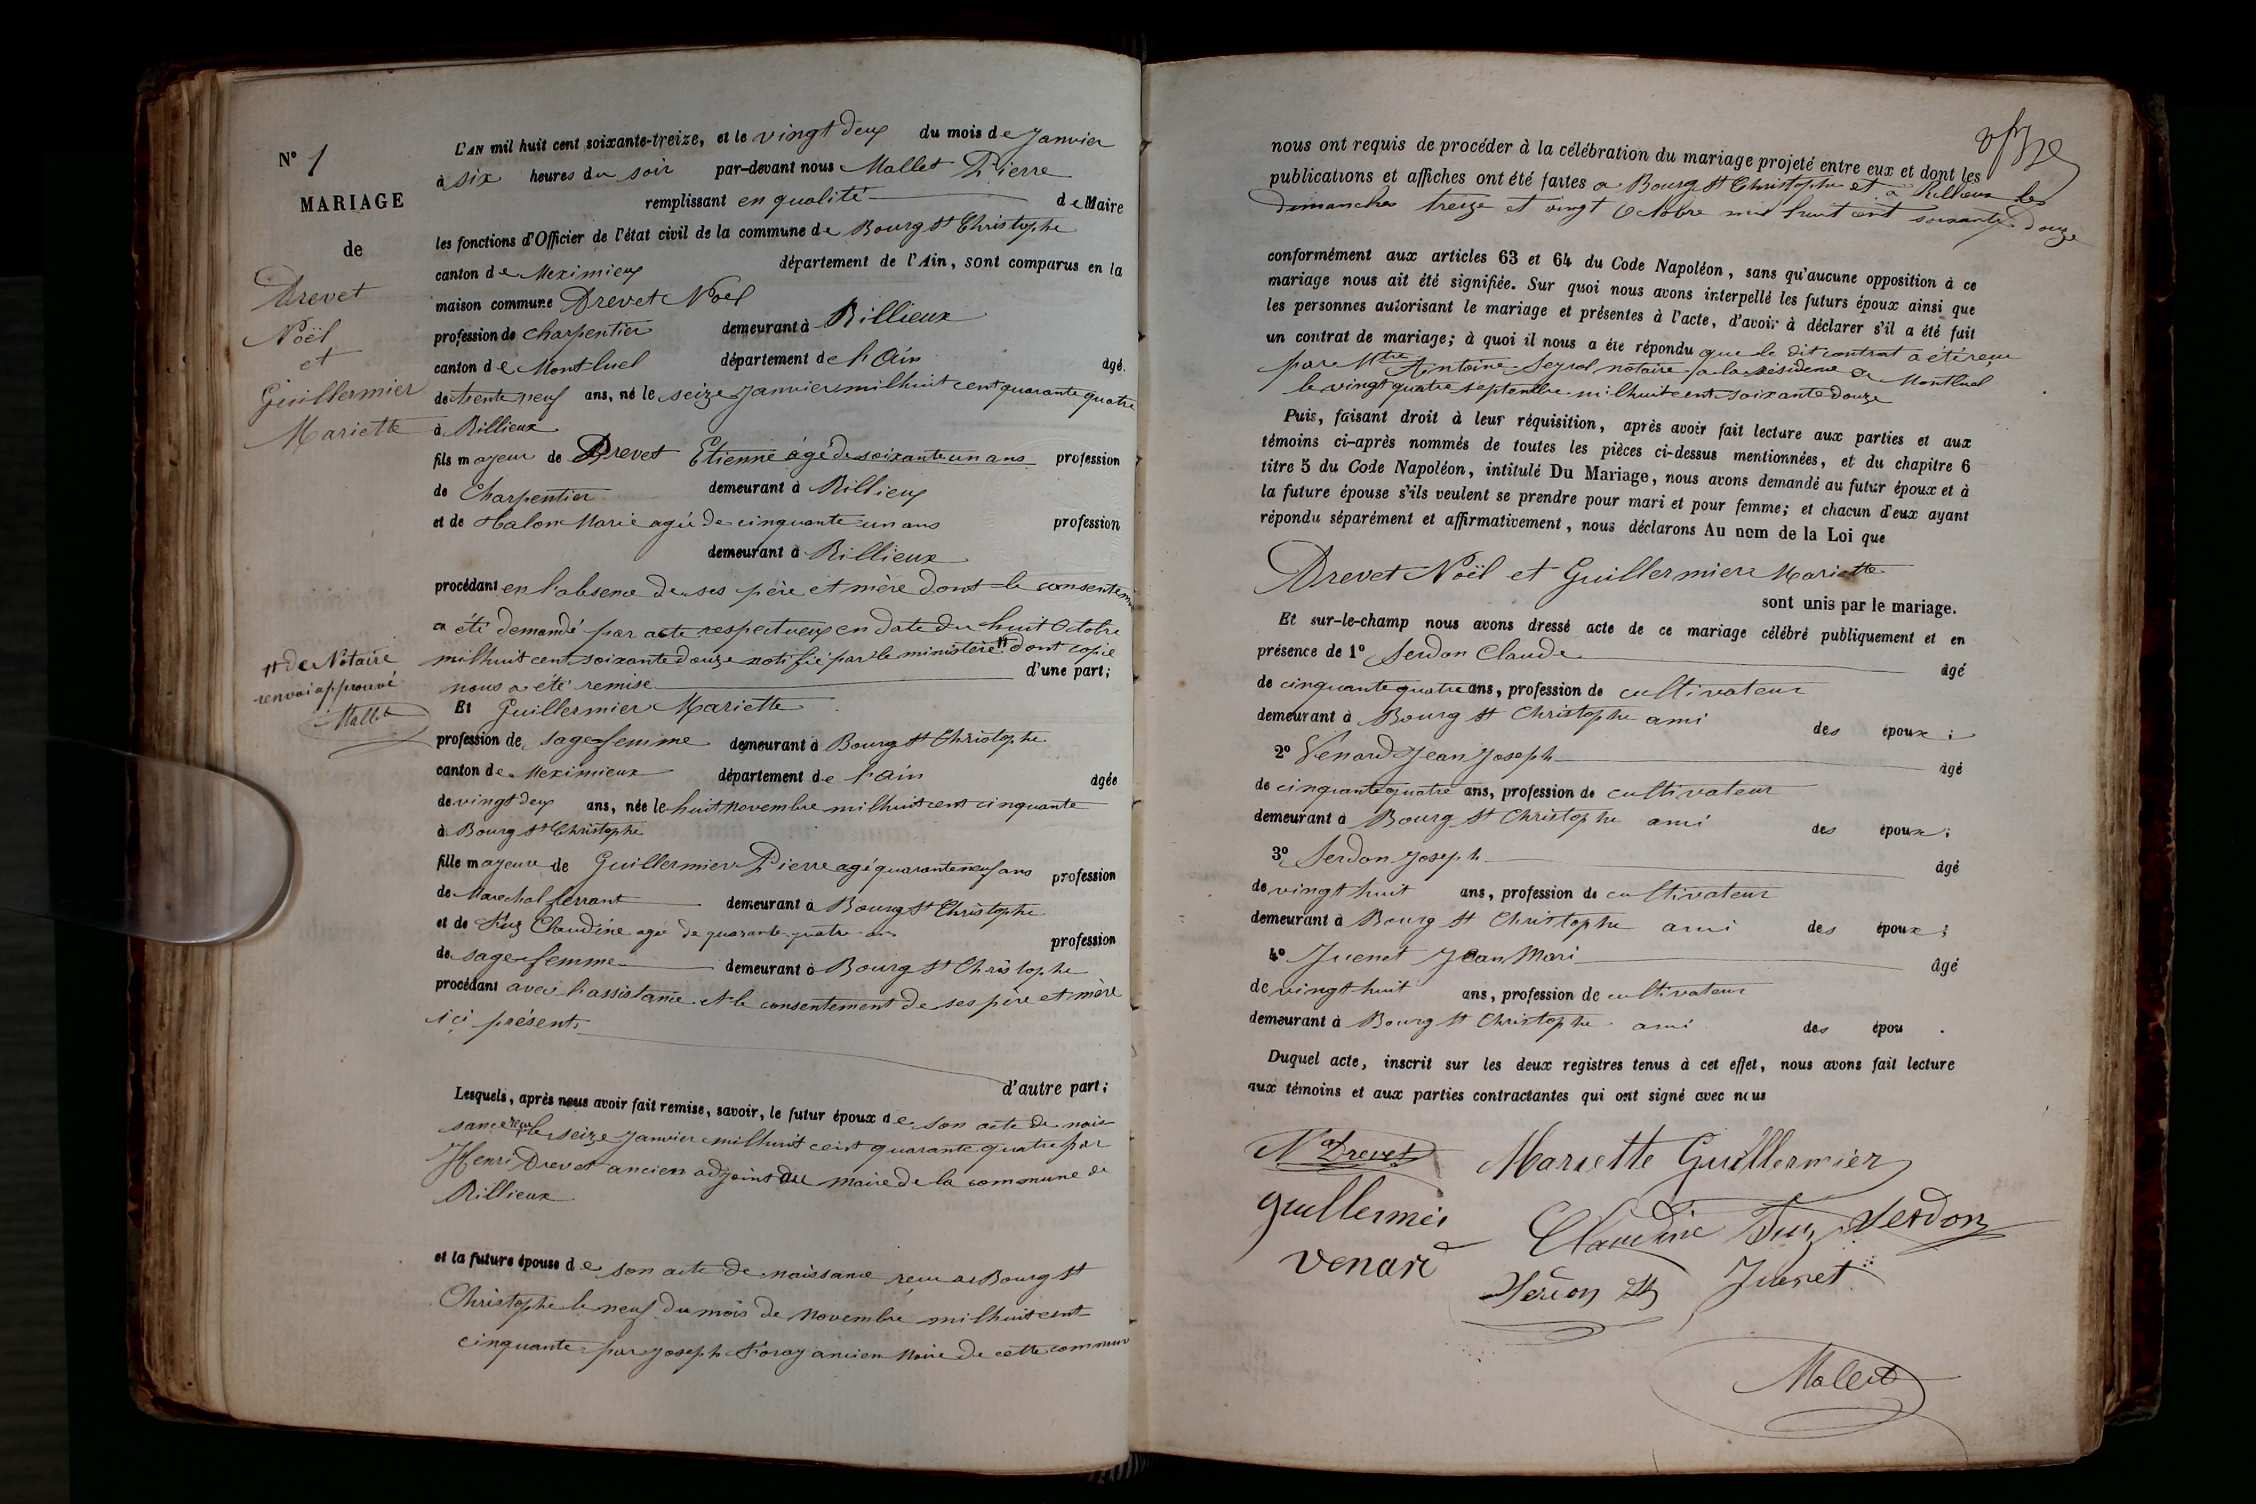 N° 1
MARIAGE
de
Drevet
Noël
et
Guillermier
Mariette
L'AN mil huit cent soixante-treize, et le vingt deux du mois de Janvier
à six heures du soir par-devant nous Mallet Pierre
remplissant en qualité de Maire
les fonctions d'Officier de l'état civil de la commune de Bourg St Christophe
canton de Meximieux département de l'Ain, sont comparus en la
maison commune Drevet Noël
profession de charpentier demeurant à Rillieux
canton de Montluel département de l'Ain âgé
de trente neuf ans, né le seize Janvier mil huit cent quarante quatre
à Rillieux
fils mayeur de Drevet Etienne âgé de soixante un ans profession
de Charpentier demeurant à Rillieux
et de Halon Marie agée de cinquante un ans profession
demeurant à Rillieux
procédant en l'absence de ses père et mère dont le consentem
a été demandé par acte respectueux en date du huit Octobre
mil huit cent soixante douze notifié par le ministère # dont copie
nous a été remise d'une part;
# de Notaire
renvoi approuvé
Mallet
Et Guillermier Mariette
profession de sage femme demeurant à Bourg St Christophe
canton de Meximieux département de l'ain agée
de vingt deux ans, née le huit novembre mil huit cent cinquante
à Bourg St Christophe
fille mayeure de Guillermier Pierre agé quarante neuf ans profession
de Marechal ferrant demeurant à Bourg St Christophe
et de Fuz Claudine agée de quarante quatre ans profession
de sage femme demeurant à Bourg St Christophe
procédant avec l'assistance et le consentement de ses père et mère
ici présents
d'autre part;
Lesquels, après nous avoir fait remise, savoir, le futur époux de son acte de nais
sance reçu le seize Janvier mil huit cent quarante quatre par
Henri Drevet ancien adjoint au maire de la commune de
Rillieux
et la future épouse de son acte de naissance reçu à Bourg St
Christophe le neuf du mois de Novembre mil huit cent
cinquante par Joseph Foray ancien Maire de cette commune
nous ont requis de procéder à la célébration du mariage projeté entre eux et dont les
publications et affiches ont été faites a Bourg St Christophe et a Rillieux les
dimanches treize et vingt Octobre mil huit cent soixante douze
conformément aux articles 63 et 64 du Code Napoléon, sans qu'aucune opposition à ce
mariage nous ait été signifiée. Sur quoi nous avons interpellé les futurs époux ainsi que
les personnes autorisant le mariage et présentes à l'acte, d'avoir à déclarer s'il a été fait
un contrat de mariage; à quoi il nous a été répondu que le dit contrat a été reçu
par Mtre Antoine Seyrol notaire a la résidence de Montluel
le vingt quatre septembre mil huit cent soixante douze
Puis, faisant droit à leur réquisition, après avoir fait lecture aux parties et aux
témoins ci-après nommés de toutes les pièces ci-dessus mentionnées, et du chapitre 6
titre 5 du Code Napoléon, intitulé Du Mariage, nous avons demandé au futur époux et à
la future épouse s'ils veulent se prendre pour mari et pour femme; et chacun d'eux ayant
répondu séparément et affirmativement, nous déclarons Au nom de la Loi que
Drevet Noël et Guillermier Mariette
sont unis par le mariage.
Et sur-le-champ nous avons dressé acte de ce mariage célébré publiquement et en
présence de 1° Serdon Claude âgé
de cinquante quatre ans, profession de cultivateur
demeurant à Bourg St Christophe ami des époux;
2° Venard Jean Joseph âgé
de cinquante quatre ans, profession de cultivateur
demeurant à Bourg St Christophe ami des époux;
3° Serdon Joseph âgé
de vingt huit ans, profession de cultivateur
demeurant à Bourg St Christophe ami des époux;
4° Juenet Jean Mari âgé
de vingt huit ans, profession de cultivateur
demeurant à Bourg St Christophe ami des épou .
Duquel acte, inscrit sur les deux registres tenus à cet effet, nous avons fait lecture
aux témoins et aux parties contractantes qui ont signé avec nous
Nel Drevet Mariette Guillermier
guillermier Claudine Fuz Serdon
venard Juenet
Mallet